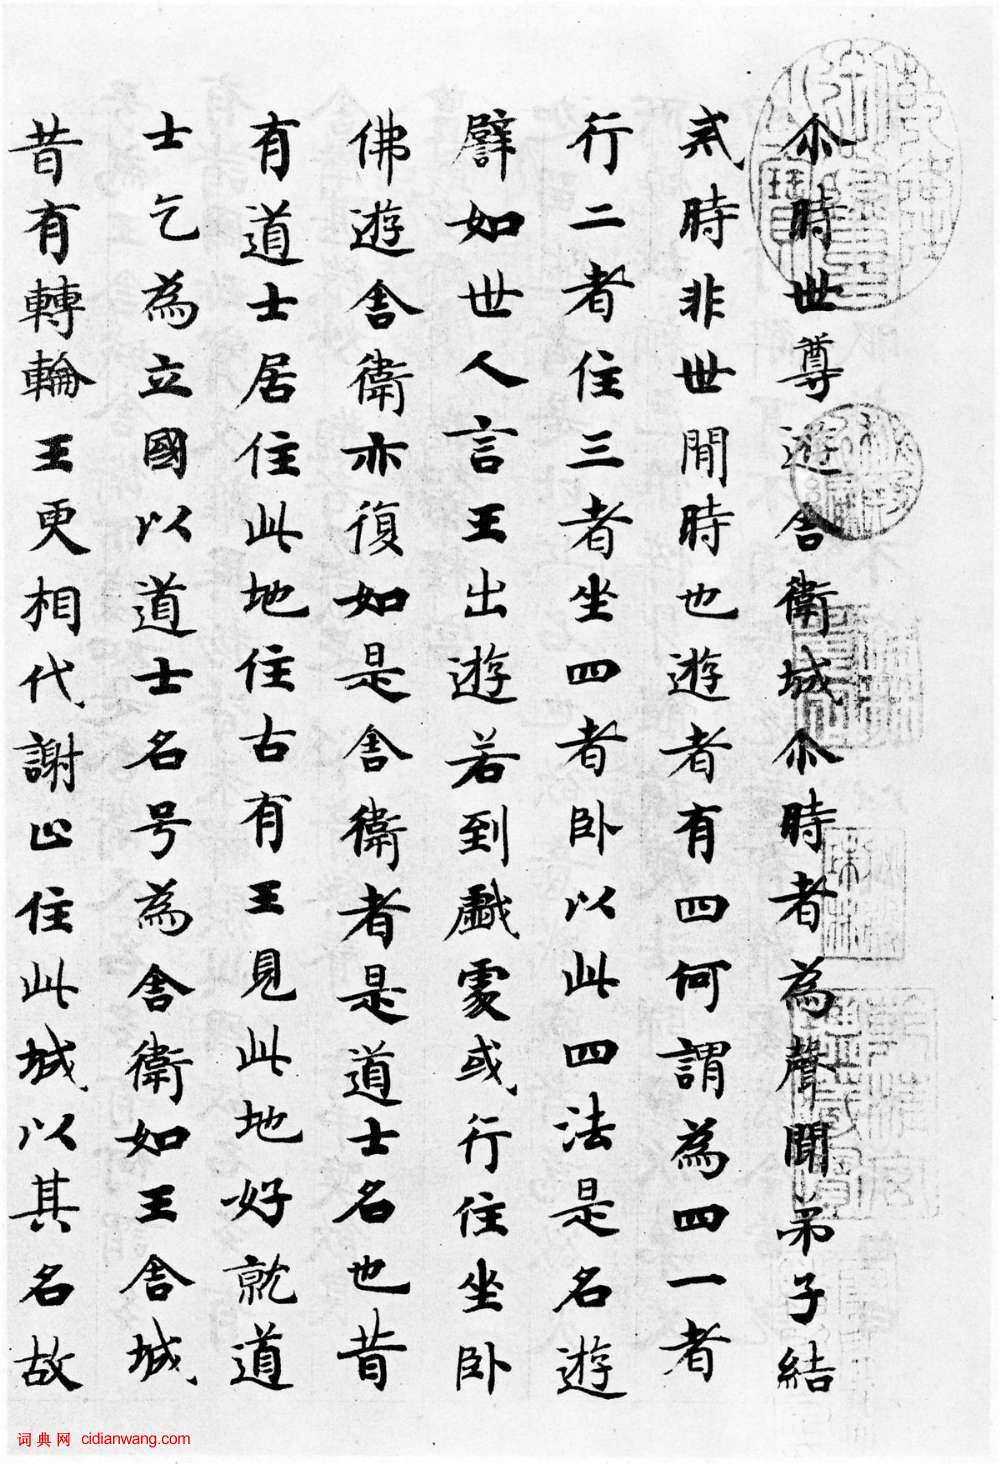 尒時世尊遊舍衛城尒時者為聲聞弟子結
戒時非世間時也遊者有四何謂為四一者
行二者住三者坐四者卧以此四法是名遊
譬如世人言王出遊若到戲處或行住坐卧
佛遊舍衛亦復如是舍衛者是道士名也昔
有道士居住此地住古有王見此地好就道
士乞為立國以道士名号為舍衛如王舍城
昔有轉輪王更相代謝止住此城以其名故
词典网 cidianwang.com